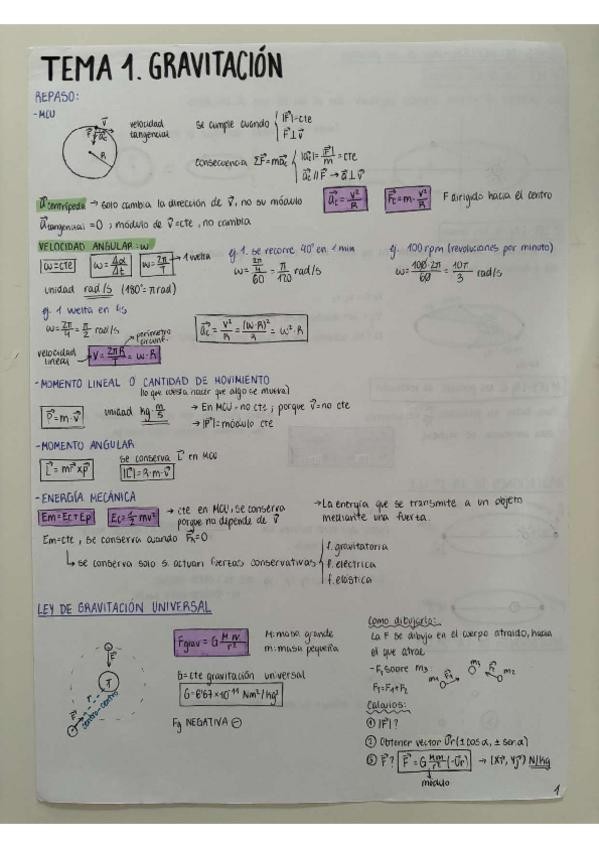 TEMA 1. GRAVITACIÓN
REPASO:
-MCU
velocidad tangencial
se cumple cuando { |F⃗|=cte
F⃗⊥v⃗
consecuencia ΣF⃗=ma⃗c { |a⃗c|=|F⃗|/m=cte
a⃗c//F⃗ → a⃗⊥v⃗
a⃗ centrípeda → solo cambia la dirección de v⃗, no su módulo
a⃗c=v²/R
F⃗c=m·v²/R
F dirigido hacia el centro
a⃗tangencial=0; módulo de v⃗=cte, no cambia
VELOCIDAD ANGULAR: ω
ω=cte
ω=Δα/Δt
ω=2π/T → 1 vuelta
unidad rad/s (180°=π rad)
ej. 1 vuelta en 4s
ω=2π/4=π/2 rad/s
velocidad lineal
v=2πR/T=ω·R
perímetro circunf.
a⃗c=v²/R=(ω·R)²/R=ω²·R
ej. 100 rpm (revoluciones por minuto)
ω=100·2π/60=10π/3 rad/s
-MOMENTO LINEAL O CANTIDAD DE MOVIMIENTO
(lo que cuesta hacer que algo se mueva)
p⃗=m·v⃗
unidad kg·m/s
→ En MCU - no cte; porque v⃗=no cte
→ |P⃗|=módulo cte
-MOMENTO ANGULAR
L⃗=mr⃗xp⃗
se conserva L⃗ en MCU
|L⃗|=R·m·v⃗
-ENERGÍA MECÁNICA
Em=Ec+Ep
Ec=1/2 mv²
→ cte en MCU, se conserva
porque no depende de v⃗
→La energía que se transmite a un objeto
mediante una fuerza.
Em=cte, se conserva cuando F⃗R=0
↳ se conserva solo si actúan fuerzas conservativas { f. gravitatoria
f. eléctrica
f. elástica
LEY DE GRAVITACIÓN UNIVERSAL
F
T
r
centro-centro
F
Fgrav=G M·m/r²
M: masa grande
m: masa pequeña
G=cte gravitación universal
G=6'67×10⁻¹¹ Nm²/kg²
Fg NEGATIVA ⊖
Como dibujarla:
La F se dibuja en el cuerpo atraído, hacia
el que atrae
-F₁ sobre m₃
F_T=F₁+F₂
m₃
m₂
Cálculos:
① |F⃗|?
② Obtener vector u⃗r (±cos α, ±sen α)
③ F⃗? F⃗=G M·m/r² (-u⃗r) → (Xi⃗, Yj⃗) N/kg
módulo
1